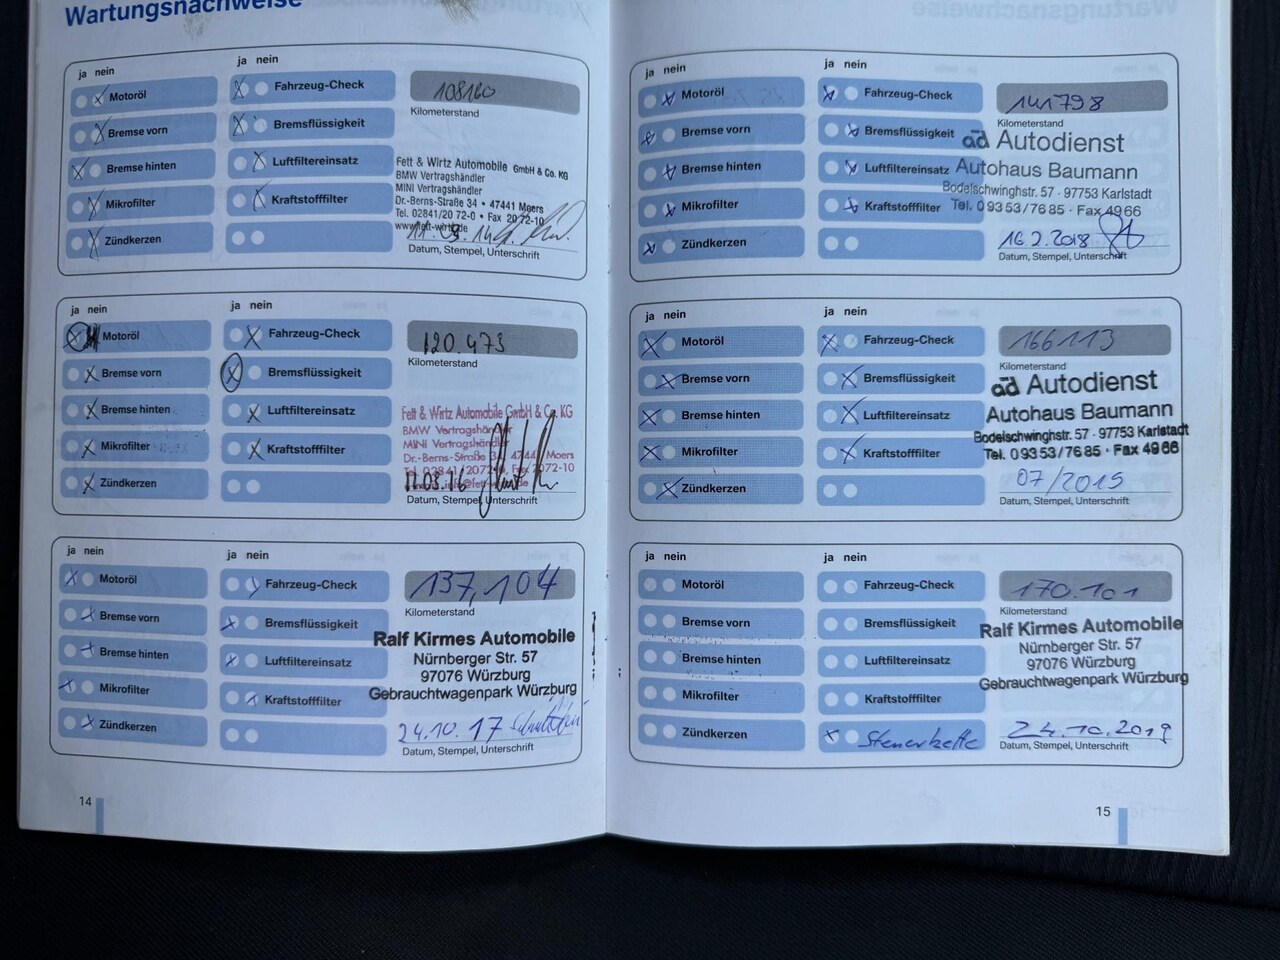 Wartungsnachweise
ja nein
ja nein
Motoröl
Fahrzeug-Check
108160
Kilometerstand
Bremse vorn
Bremsflüssigkeit
Bremse hinten
Luftfiltereinsatz
Mikrofilter
Kraftstofffilter
Zündkerzen
Fett & Wirtz Automobile GmbH & Co. KG
BMW Vertragshändler
MINI Vertragshändler
Dr.-Berns-Straße 34 • 47441 Moers
Tel. 02841/20 72-0 • Fax 20 72-10
www.fett-wirtz.de
Datum, Stempel, Unterschrift
ja nein
ja nein
Motoröl
Fahrzeug-Check
120.473
Kilometerstand
Bremse vorn
Bremsflüssigkeit
Bremse hinten
Luftfiltereinsatz
Mikrofilter
Kraftstofffilter
Zündkerzen
Fett & Wirtz Automobile GmbH & Co. KG
BMW Vertragshändler
MINI Vertragshändler
Dr.-Berns-Straße 34 47441 Moers
Tel. 02841/2072-0, Fax 2072-10
Datum, Stempel, Unterschrift
ja nein
ja nein
Motoröl
Fahrzeug-Check
137,104
Kilometerstand
Bremse vorn
Bremsflüssigkeit
Bremse hinten
Luftfiltereinsatz
Mikrofilter
Kraftstofffilter
Zündkerzen
Ralf Kirmes Automobile
Nürnberger Str. 57
97076 Würzburg
Gebrauchtwagenpark Würzburg
24.10.17
Datum, Stempel, Unterschrift
14
ja nein
ja nein
Motoröl
Fahrzeug-Check
141798
Kilometerstand
Bremse vorn
Bremsflüssigkeit
Bremse hinten
Luftfiltereinsatz
Mikrofilter
Kraftstofffilter
Zündkerzen
ad Autodienst
Autohaus Baumann
Bodelschwinghstr. 57 · 97753 Karlstadt
Tel. 09353/7685 · Fax 4966
16.2.2018
Datum, Stempel, Unterschrift
ja nein
ja nein
Motoröl
Fahrzeug-Check
166113
Kilometerstand
Bremse vorn
Bremsflüssigkeit
Bremse hinten
Luftfiltereinsatz
Mikrofilter
Kraftstofffilter
Zündkerzen
ad Autodienst
Autohaus Baumann
Bodelschwinghstr. 57 · 97753 Karlstadt
Tel. 09353/7685 · Fax 4966
07/2019
Datum, Stempel, Unterschrift
ja nein
ja nein
Motoröl
Fahrzeug-Check
170.101
Kilometerstand
Bremse vorn
Bremsflüssigkeit
Bremse hinten
Luftfiltereinsatz
Mikrofilter
Kraftstofffilter
Zündkerzen
Steuerkette
Ralf Kirmes Automobile
Nürnberger Str. 57
97076 Würzburg
Gebrauchtwagenpark Würzburg
24.10.2019
Datum, Stempel, Unterschrift
15